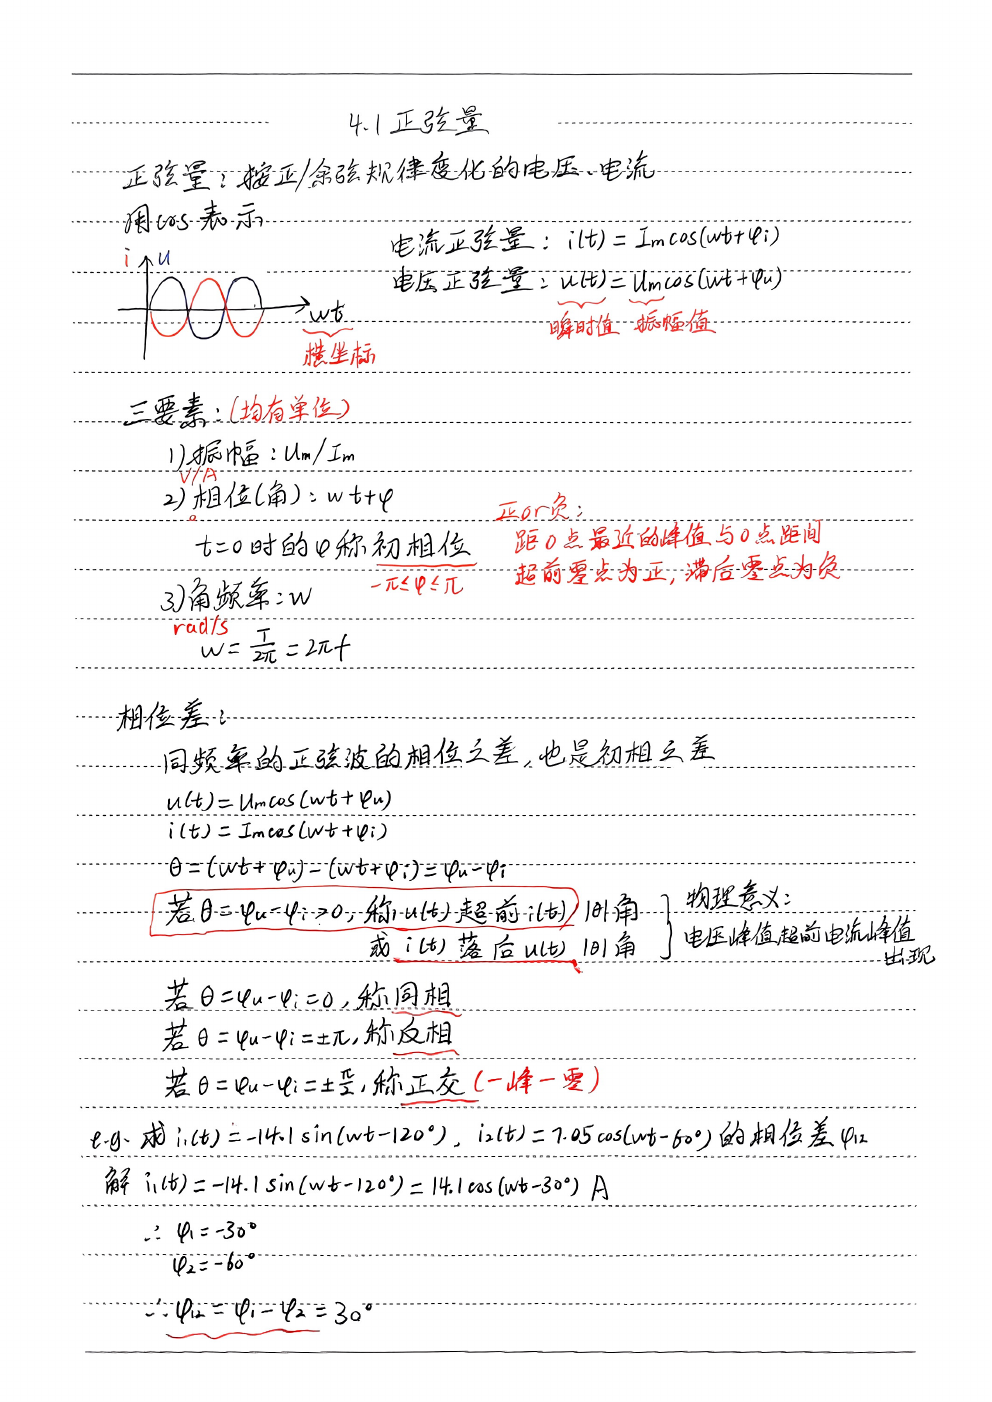 4.1 正弦量
正弦量：按正/余弦规律变化的电压、电流
用cos表示
电流正弦量：i(t)=Imcos(wt+φi)
i u
电压正弦量：u(t)=Umcos(wt+φu)
wt
瞬时值 振幅值
横坐标
三要素：(均有单位)
1)振幅：Um/Im
V/A
2)相位(角)：wt+φ
°
正or负：
t=0时的φ称初相位
距0点最近的峰值与0点距间
-π≤φ≤π
超前零点为正，滞后零点为负
3)角频率：w
rad/s
w=T/2π=2πf
相位差：
同频率的正弦波的相位之差，也是初相之差
u(t)=Umcos(wt+φu)
i(t)=Imcos(wt+φi)
θ=(wt+φu)-(wt+φi)=φu-φi
若θ=φu-φi>0，称u(t)超前i(t) |θ|角
物理意义：
或i(t)落后u(t) |θ|角
电压峰值超前电流峰值
出现
若θ=φu-φi=0，称同相
若θ=φu-φi=±π，称反相
若θ=φu-φi=±π/2，称正交(一峰一零)
e.g. 求i₁(t)=-14.1sin(wt-120°)，i₂(t)=7.05cos(wt-60°)的相位差φ₁₂
解 i₁(t)=-14.1sin(wt-120°)=14.1cos(wt-30°) A
∴ φ₁=-30°
φ₂=-60°
∴ φ₁₂=φ₁-φ₂=30°